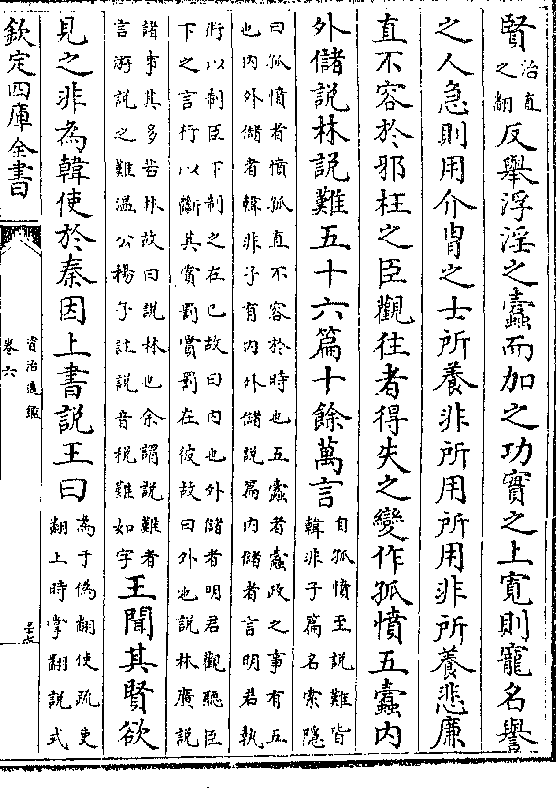 賢治直
之翻反舉浮淫之蠧而加之功實之上寛則寵名譽
之人急則用介胄之士所養非所用所用非所養悲廉
直不容於邪枉之臣觀往者得失之變作孤憤五蠧内
外儲説林説難五十六篇十餘萬言自孤憤至説難皆
韓非子篇名索隠
曰孤憤者憤孤直不容於時也五蠧者蠧政之事有五
也内外儲者韓非子有内外儲説篇内儲者言明君執
術以制臣下制之在已故曰内也外儲者明君觀聽臣
下之言行以斷其賞罰賞罰在彼故曰外也説林廣説
諸事其多若林故曰説林也余謂説難者
言游説之難温公揚子註説音税難如字王聞其賢欲
見之非為韓使於秦因上書説王曰為于偽翻使疏吏
翻上時掌翻説式
欽定四庫全書
資治通鑑
卷六